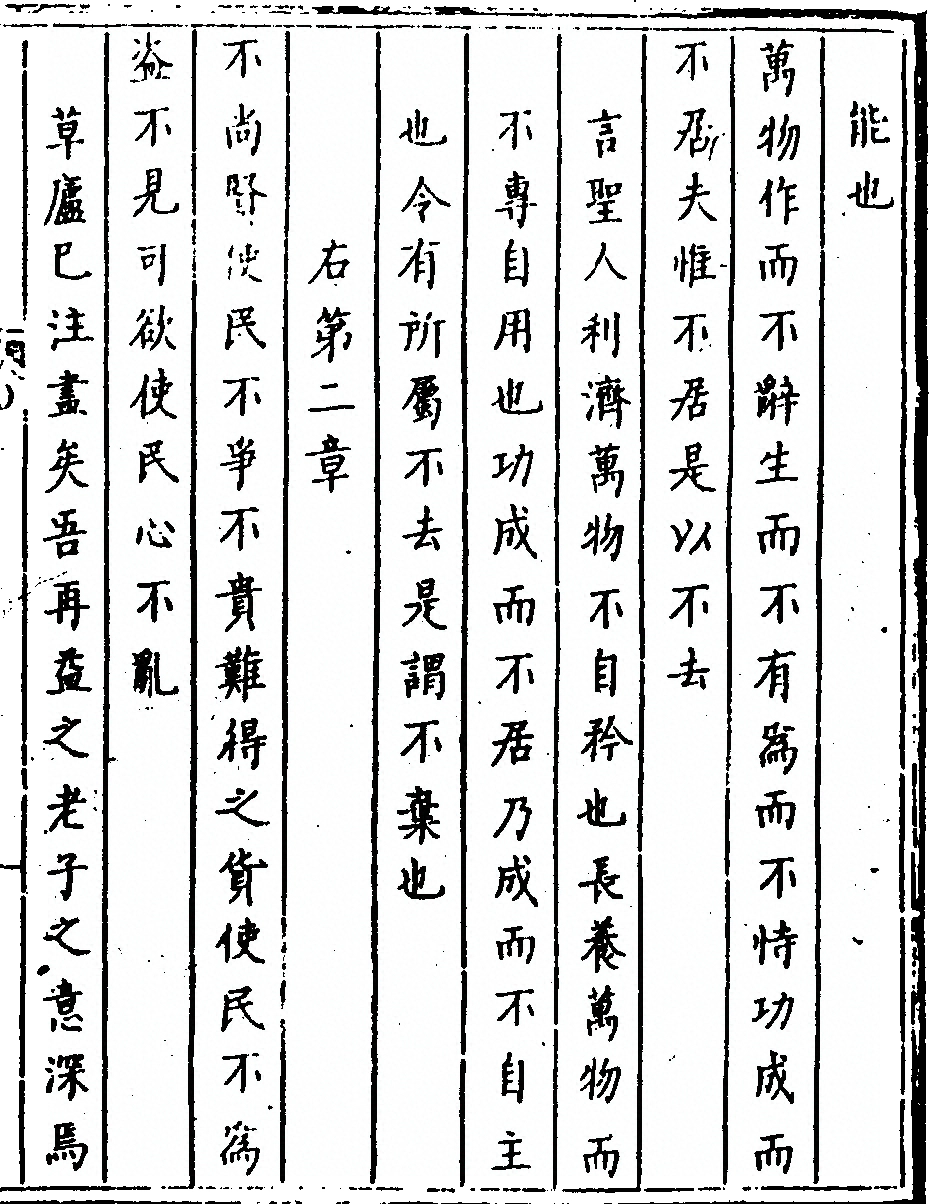 能也
萬物作而不辭生而不有為而不恃功成而
不居夫惟不居是以不去
言聖人利濟萬物不自矜也長養萬物而
不專自用也功成而不居乃成而不自主
也令有所屬不去是謂不棄也
右第二章
不尚賢使民不爭不貴難得之貨使民不為
盜不見可欲使民心不亂
草廬巳注盡矣吾再益之老子之意深焉